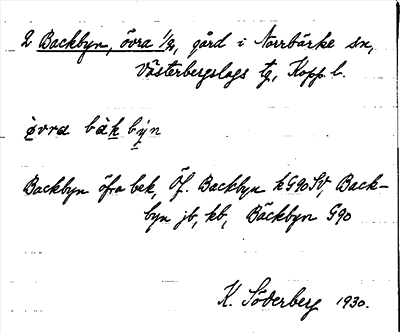 2 Backbyn, övra 1/2, gård i Norrbärke sn,
Västerbergslags tg, Kopp. l.
övra bàkbýn
Backbyn öfra bek, Öf. Backbyn hG90SV, Back-
byn jb, kb, Bäckbyn G90
K. Söderberg 1930.